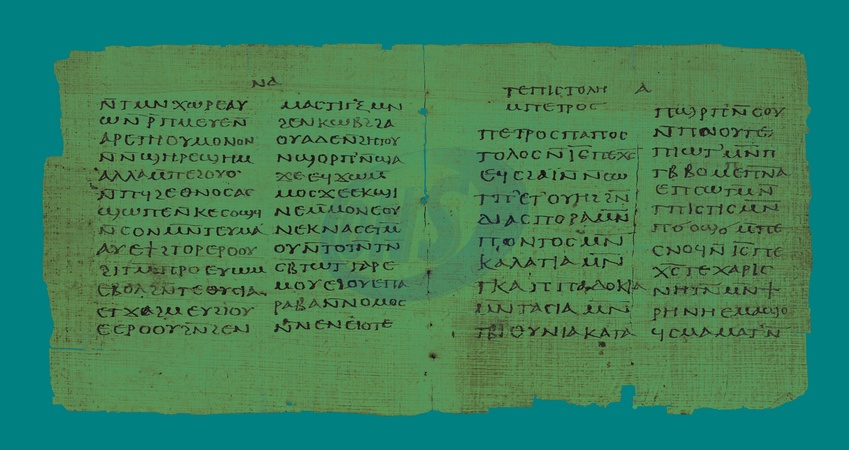 ⲛⲁ
ⲛ̄ⲧⲙⲛⲭⲱⲣⲉⲁⲩ
ⲱⲛ̄ⲣ̄ⲡⲙⲉⲩⲉⲛ̄
ⲁⲣⲉⲧⲏⲟⲩⲙⲟⲛⲟⲛ
ⲛ̄ⲛϣⲏⲣⲉϣⲏⲙ
ⲁⲗⲗⲁⲙⲡⲉϩⲟⲩⲟ
ϩⲉⲑⲛⲟⲥⲁⲥ
ϣⲱⲡⲉⲛ̄ⲕⲉⲥⲁϣϥ
ⲛ̄ⲥⲟⲛⲙⲛ̄ⲧⲉⲩⲙⲁ
ⲁⲩⲉϯϩⲧⲟⲣⲉⲣⲟⲟⲩ
ϩⲓⲧⲙ̄ⲡⲣ̄ⲣⲟⲉⲩⲱⲙ
ⲉⲃⲟⲗϩⲛ̄ⲧⲉⲑⲩⲥⲓⲁ
ⲉⲧϫⲁϩⲙⲉⲩϩⲓⲟⲩ
ⲉⲉⲣⲟⲟⲩϩⲛ̄ϩⲉⲛ
ⲙⲁⲥⲧⲓⲅⲝ̄ⲙⲛ
ϩⲉⲛⲕⲱⲃϩ̄ϩⲁ
ⲟⲩⲁⲇⲉⲛ̄ϩⲏⲧⲟⲩ
ⲛ̄ϣⲟⲣⲡⲛ̄ϣⲁ
ϫⲉⲉϥϫⲱⲙ̄
ⲙⲟⲥϫⲉⲉⲕϣⲓ
ⲛⲉⲙ̄ⲙⲟⲛⲉⲟⲩ
ⲛⲉⲕⲛⲁⲥⲉⲧⲙ̄
ⲟⲩⲛ̄ⲧⲟⲧⲛ̄ⲧⲛ̄
ⲥⲃ̄ⲧⲱⲧⲅⲁⲣⲉ
ⲙⲟⲩⲉϩⲟⲩⲉⲡⲁ
ⲣⲁⲃⲁⲛⲛⲟⲙⲟⲥ
ⲛ̄ⲛⲉⲛⲉⲓⲟⲧⲉ
ⲧⲉⲡⲓⲥⲧⲟⲗⲏ ⲁ
ⲙⲡⲉⲧⲣⲟⲥ
ⲡⲉⲧⲣⲟⲥⲡⲁⲡⲟⲥ
ⲧⲟⲗⲟⲥⲛ̄ⲓⲥ̄ⲡⲉⲭⲥ̄
ⲉϥⲥϩⲁⲓ̈ⲛ̄ⲛⲥⲱ
ⲧⲡⲉⲧⲟⲩⲏϩϩⲛ̄ⲧ
ⲇⲓⲁⲥⲡⲟⲣⲁⲙ̄ⲛ
ⲡⲟⲛⲧⲟⲥⲙⲛ̄
ⲕⲁⲗⲁⲧⲓⲁⲙⲛ̄
ⲧⲕⲁⲡⲡⲁⲇⲟⲕⲓⲁ
ⲙⲛ̄ⲧⲁⲥⲓⲁⲙⲛ̄
ⲧⲃⲓⲑⲩⲛⲓⲁⲕⲁⲧⲁ
ⲡϣⲣ̄ⲡⲛ̄ⲥⲟⲩ
ⲛ̄ⲡⲛⲟⲩⲧⲉ
ⲡⲓⲱⲧ'ⲙⲛ̄ⲡ
ⲧⲃ̄ⲃⲟⲙⲉⲡⲛⲁ
ⲉⲡⲥⲱⲧⲙ̄ⲛ
ⲧⲡⲓⲥⲧⲓⲥⲙⲛ̄
ⲡⲟⲩⲱϣⲙ̄ⲡⲉ
ⲥⲛⲟϥⲛ̄ⲓⲥ̄ⲡⲉ
ⲭⲥ̄ⲧⲉⲭⲁⲣⲓⲥ
ⲛⲏⲧⲛ̄ⲙⲛ̄ϯ
ⲣⲏⲛⲏⲉⲙⲁϣⲟ
ϥⲥⲙⲁⲙⲁⲧ'ⲛ